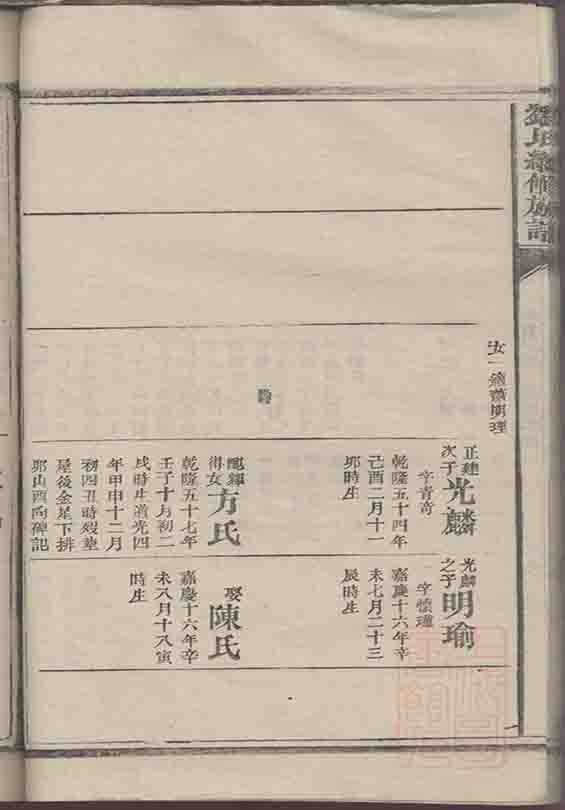 女一適蕭明理
正建
次子
光麟
字青奇
乾隆五十四年
己酉二月十一
卯時生
配
得女
方氏
乾隆五十七年
壬子十月初二
戌時生道光四
年甲申十二月
初四丑時歿塟
屋後金星下排
卯山酉向碑記
光麟
之子
明瑜
字懷瑾
嘉慶十六年辛
未七月二十三
辰時生
娶
陳氏
嘉慶十六年辛
未八月十八寅
時生